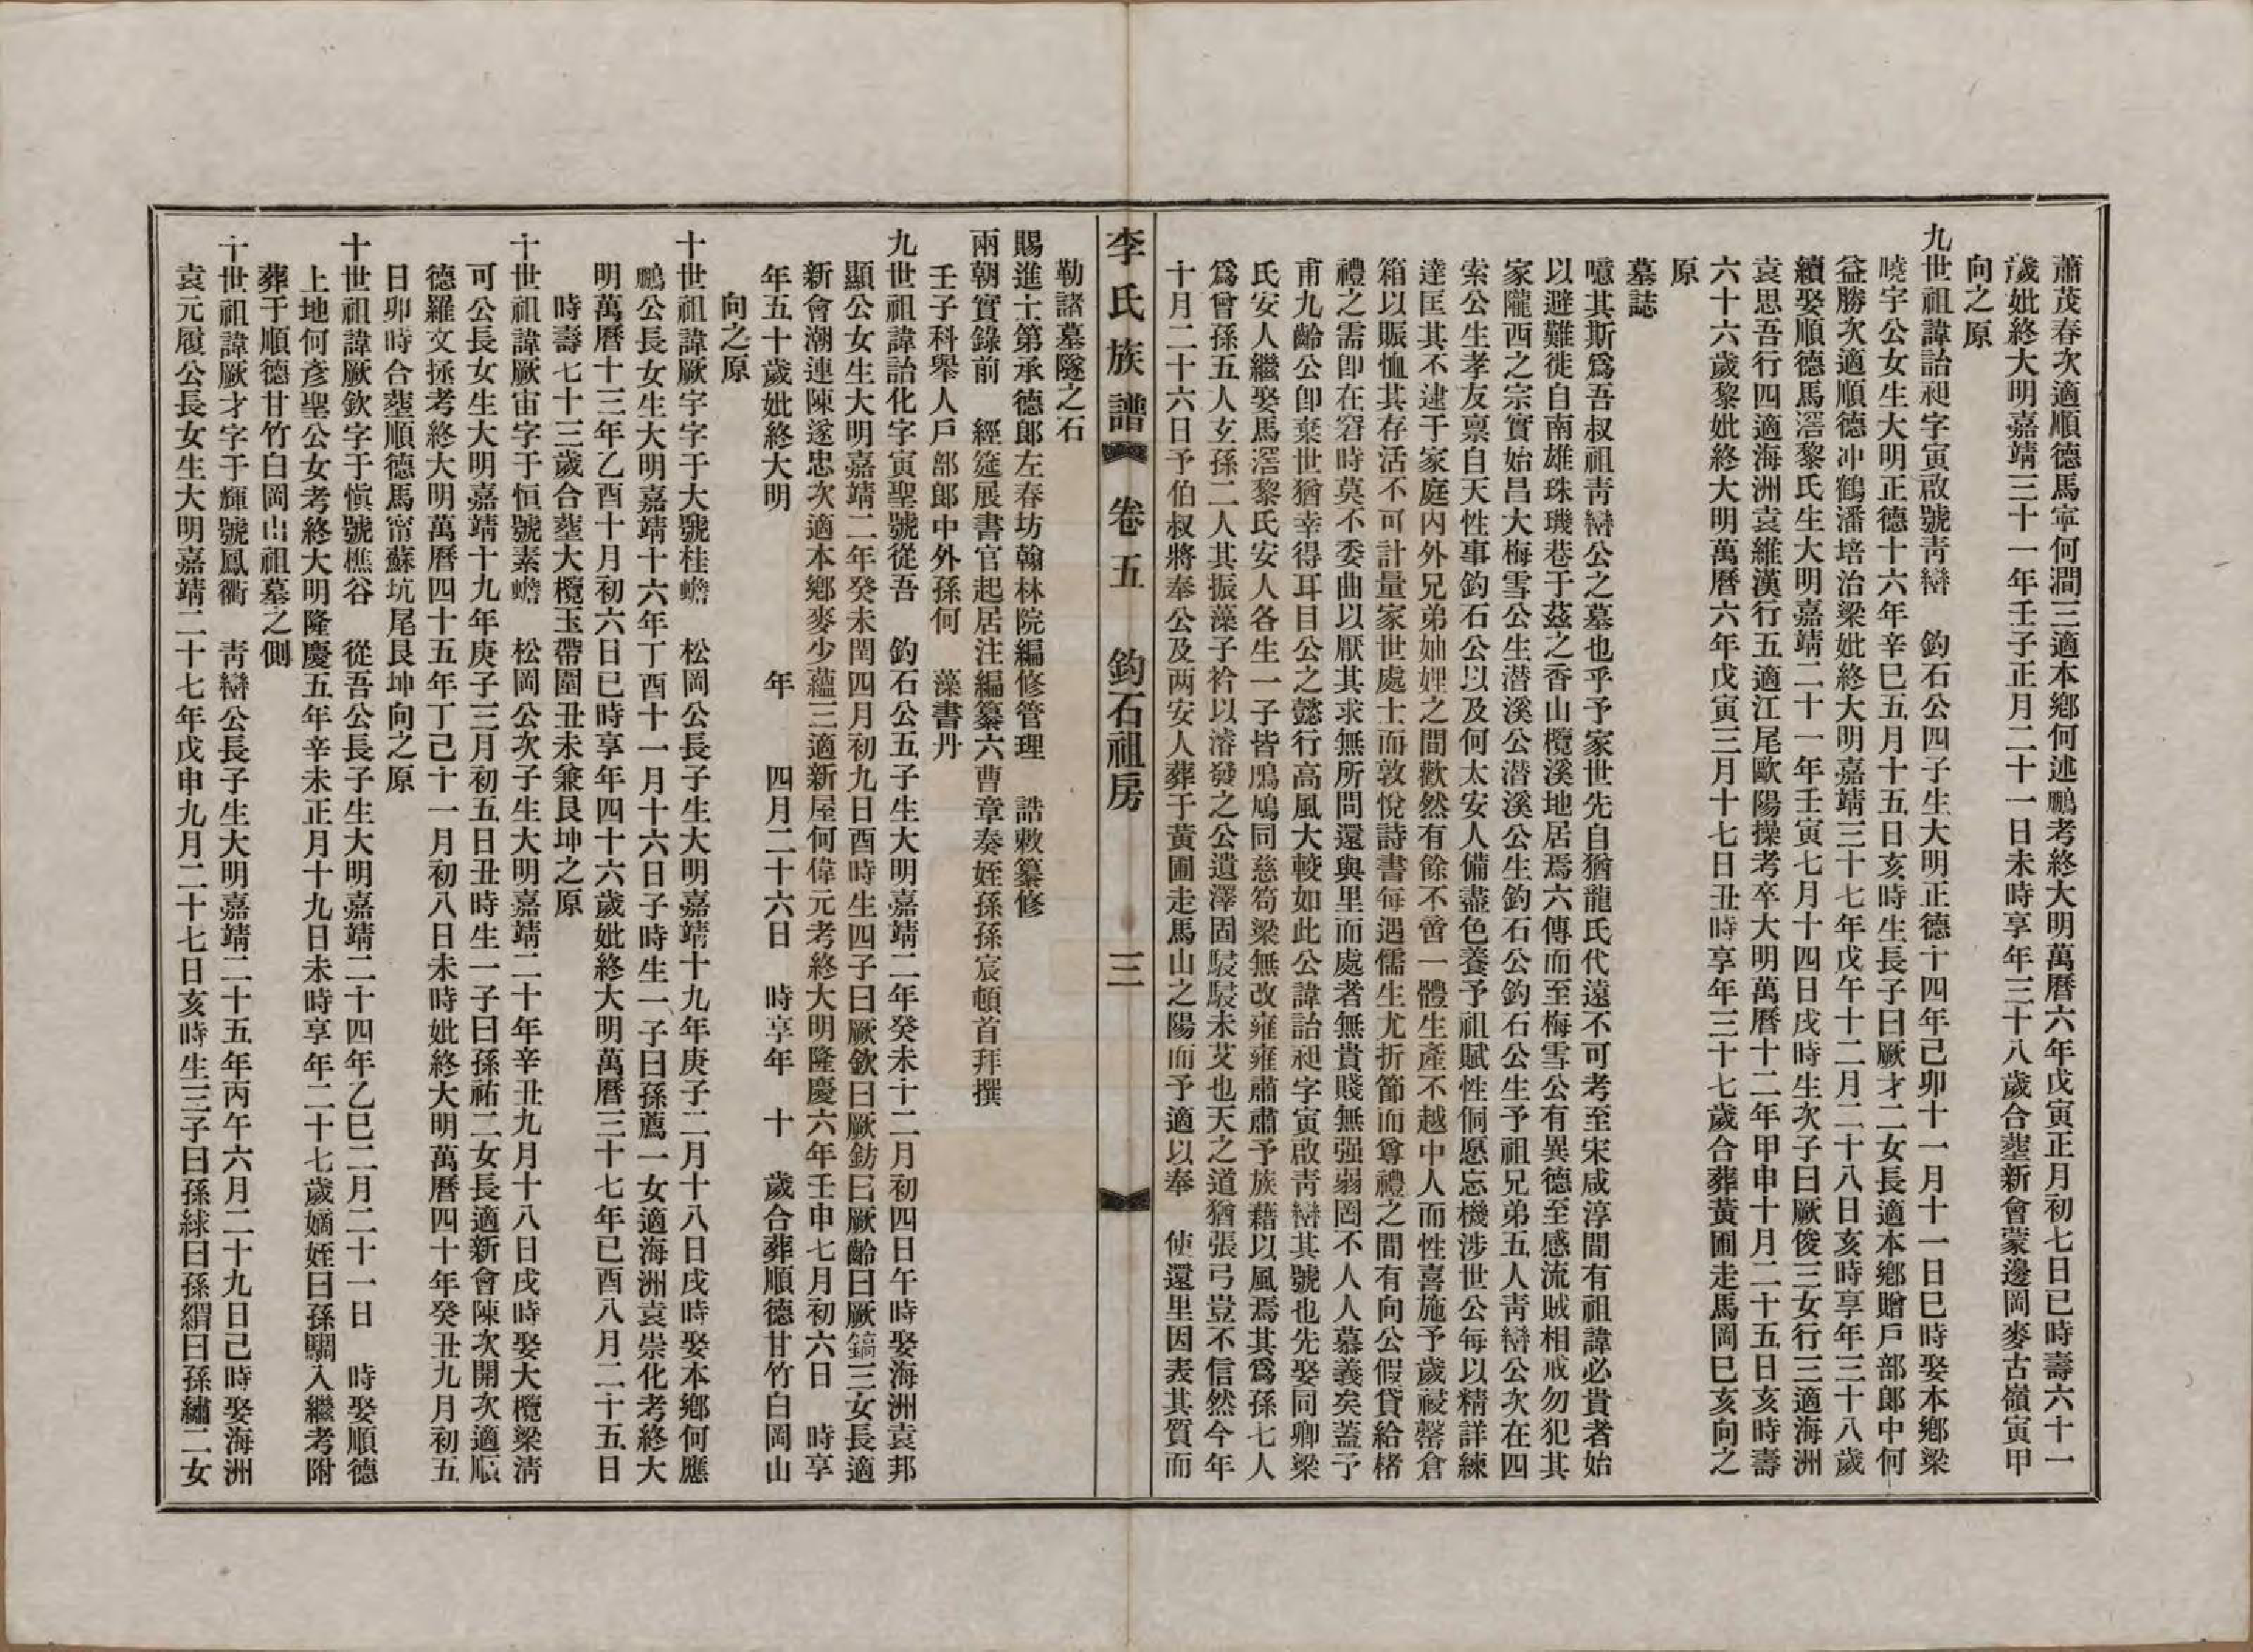 蕭茂春次適順德馬寧何澗三適本鄉何述鵬考終大明萬曆六年戊寅正月初七日巳時壽六十一
歲妣終大明嘉靖三十一年壬子正月二十一日未時享年三十八歲合塟新會蒙邊岡麥古嶺寅甲
向之原
九世祖諱詒昶字寅啟號靑巒　釣石公四子生大明正德十四年己卯十一月十一日巳時娶本鄉梁
曉宇公女生大明正德十六年辛巳五月十五日亥時生長子曰厥才二女長適本鄉贈戶部郎中何
益勝次適順德冲鶴潘培治梁妣終大明嘉靖三十七年戊午十二月二十八日亥時享年三十八歲
續娶順德馬滘黎氏生大明嘉靖二十一年壬寅七月十四日戌時生次子曰厥俊三女行三適海洲
袁思吾行四適海洲袁維漢行五適江尾歐陽操考卒大明萬曆十二年甲申十月二十五日亥時壽
六十六歲黎妣終大明萬曆六年戊寅三月十七日丑時享年三十七歲合葬黃圃走馬岡巳亥向之
原
墓誌
噫其斯爲吾叔祖靑巒公之墓也乎予家世先自猶龍氏代遠不可考至宋咸淳間有祖諱必貴者始
以避難徙自南雄珠璣巷于茲之香山欖溪地居焉六傳而至梅雪公有異德至感流賊相戒勿犯其
家隴西之宗實始昌大梅雪公生潜溪公潜溪公生釣石公釣石公生予祖兄弟五人靑巒公次在四
索公生孝友禀自天性事釣石公以及何太安人備盡色養予祖賦性侗愿忘機涉世公每以精詳練
達匡其不逮于家庭內外兄弟妯娌之間歡然有餘不啻一體生產不越中人而性喜施予歲祲罄倉
箱以賑恤其存活不可計量家世處士而敦悅詩書每遇儒生尤折節而尊禮之間有向公假貸給楮
禮之需卽在窘時莫不委曲以厭其求無所問還與里而處者無貴賤無强弱罔不人人慕義矣蓋予
甫九齡公卽棄世猶幸得耳目公之懿行高風大較如此公諱詒昶字寅啟靑巒其號也先娶同卿梁
氏安人繼娶馬滘黎氏安人各生一子皆鳲鳩同慈笱梁無改雍雍肅肅予族藉以風焉其爲孫七人
爲曾孫五人玄孫二人其振藻子衿以濬發之公遺澤固駸駸未艾也天之道猶張弓豈不信然今年
十月二十六日予伯叔將奉公及两安人葬于黃圃走馬山之陽而予適以奉　使還里因表其質而
李氏族譜　卷五　釣石祖房　三
勒諸墓隧之石
賜進士第承德郎左春坊翰林院編修管理　誥敕纂修
兩朝實錄前　經筵展書官起居注編纂六曹章奏姪孫孫宸頓首拜撰
壬子科舉人戶部郎中外孫何　藻書丹
九世祖諱詒化字寅聖號從吾　釣石公五子生大明嘉靖二年癸未十二月初四日午時娶海洲袁邦
顯公女生大明嘉靖二年癸未閏四月初九日酉時生四子曰厥欽曰厥鈁曰厥齡曰厥鎬三女長適
新會潮連陳遂忠次適本鄉麥少蘊三適新屋何偉元考終大明隆慶六年壬申七月初六日　時享
年五十歲妣終大明　　　　年　　四月二十六日　時享年　十　歲合葬順德甘竹白岡山
向之原
十世祖諱厥字字于大號桂蟾　松岡公長子生大明嘉靖十九年庚子二月十八日戌時娶本鄉何應
鵬公長女生大明嘉靖十六年丁酉十一月十六日子時生一子曰孫薦一女適海洲袁崇化考終大
明萬曆十三年乙酉十月初六日巳時享年四十六歲妣終大明萬曆三十七年己酉八月二十五日
時壽七十三歲合塟大欖玉帶圍丑未兼艮坤之原
十世祖諱厥宙字于恒號素蟾　松岡公次子生大明嘉靖二十年辛丑九月十八日戌時娶大欖梁淸
可公長女生大明嘉靖十九年庚子三月初五日丑時生一子曰孫祐二女長適新會陳次開次適順
德羅文拯考終大明萬曆四十五年丁巳十一月初八日未時妣終大明萬曆四十年癸丑九月初五
日卯時合塟順德馬甯蘇坑尾艮坤向之原
十世祖諱厥欽字于愼號樵谷　從吾公長子生大明嘉靖二十四年乙巳二月二十一日　時娶順德
上地何彥聖公女考終大明隆慶五年辛未正月十九日未時享年二十七歲嫡姪曰孫騆入繼考附
葬于順德甘竹白岡山祖墓之側
十世祖諱厥才字于輝號鳳衢　靑巒公長子生大明嘉靖二十五年丙午六月二十九日己時娶海洲
袁元履公長女生大明嘉靖二十七年戊申九月二十七日亥時生三子曰孫絿曰孫縎曰孫繡二女